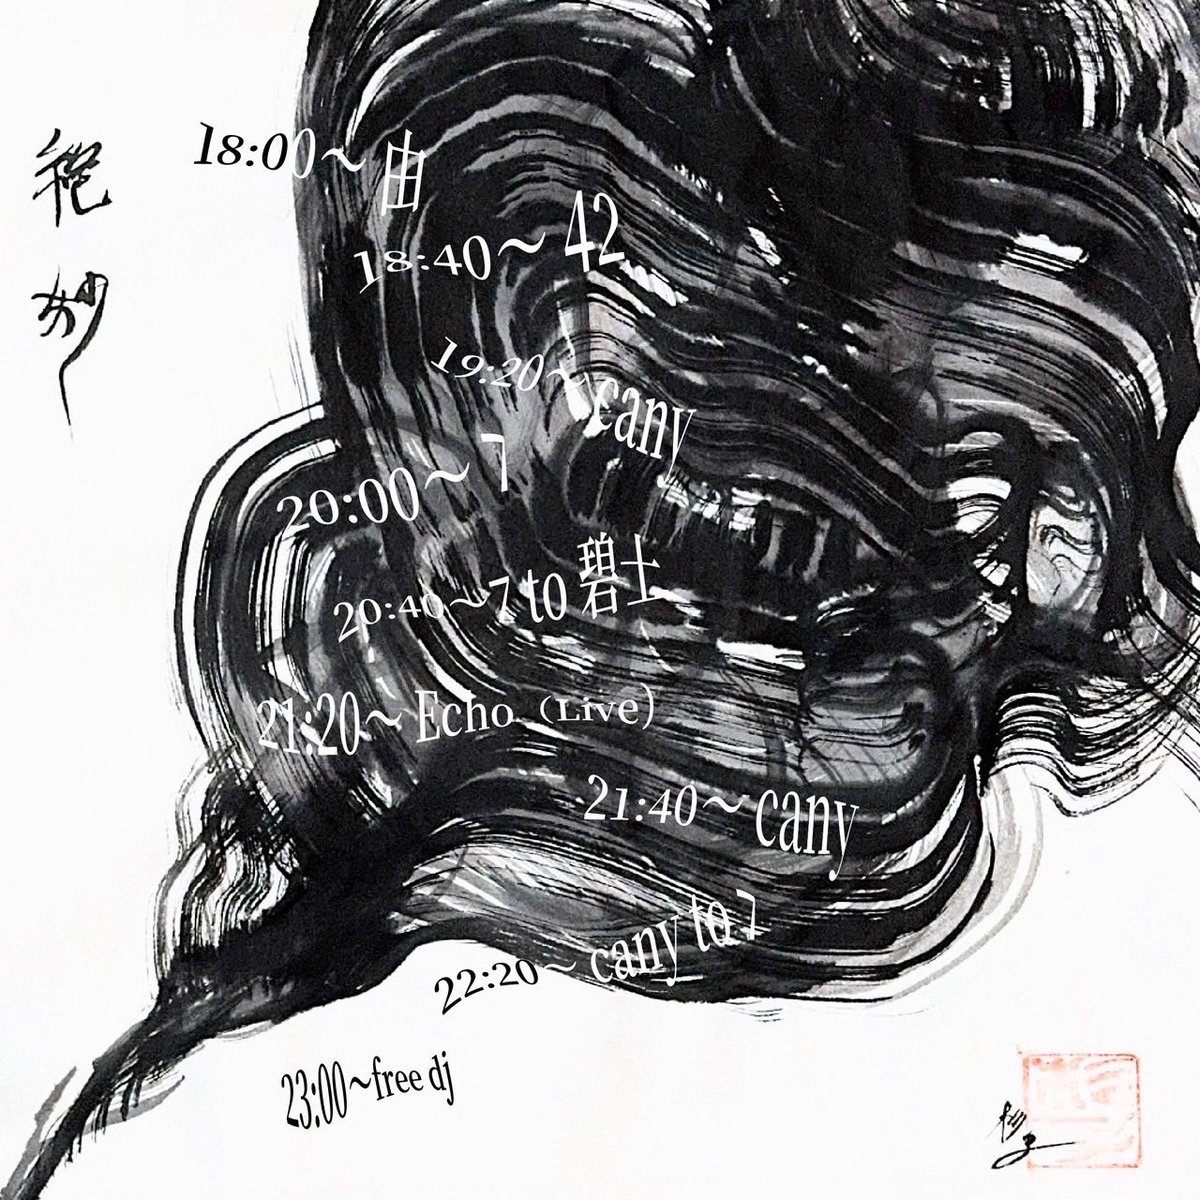 18:00～由
18:40～42
19:20～cany
20:00～7
20:40～7 to 碧士
21:20～Echo（Live）
21:40～cany
22:20～cany to 7
23:00～free dj